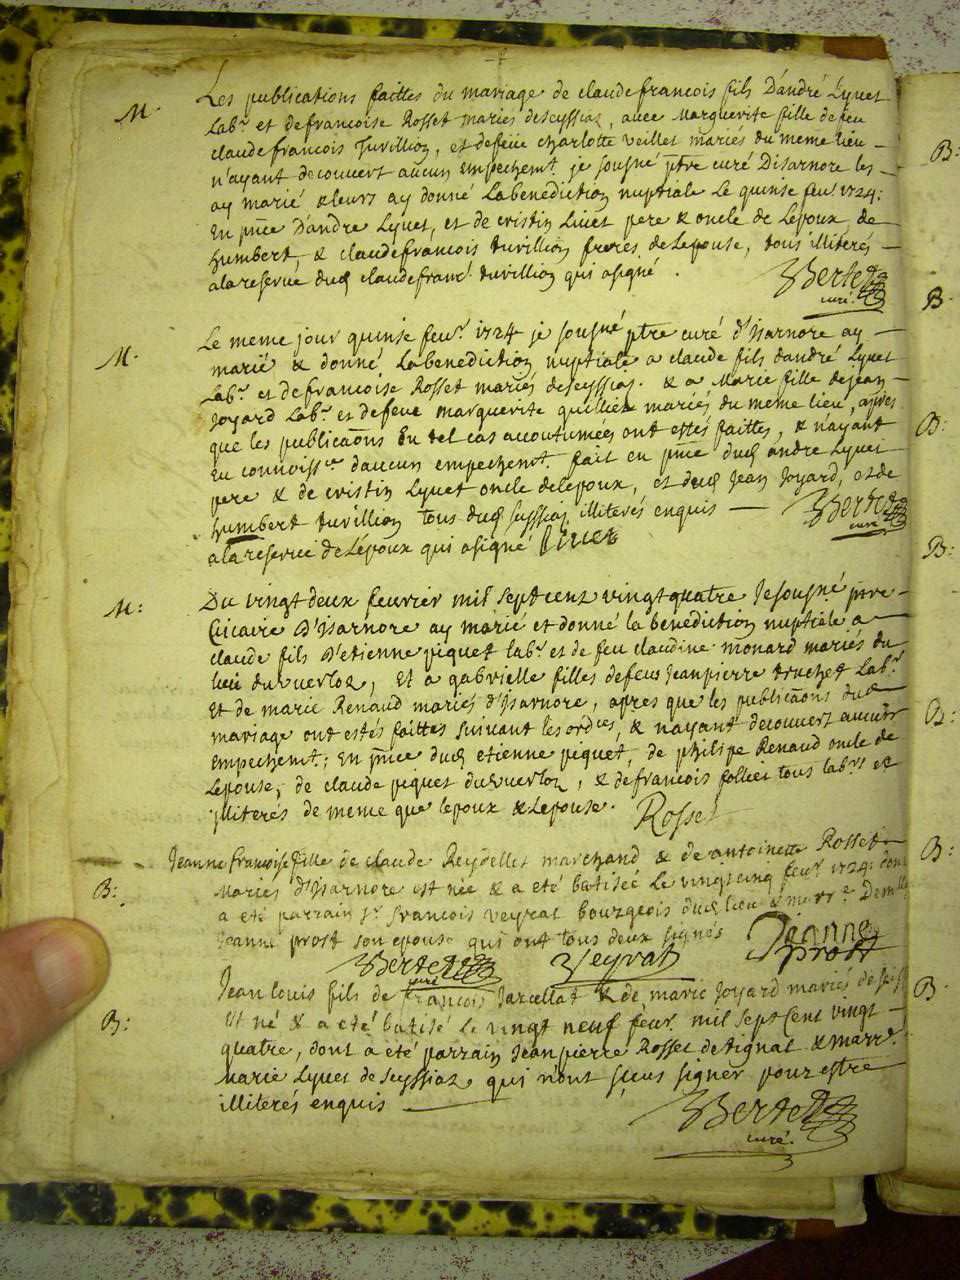 M.
Les publications faittes du mariage de claudefrancois fils D'andré Lyvet
Labr. et defrancoise Rosset mariés deseyssiaz, avec Marguerite fille defeu
claudefrancois Tuvillion, et defeüe charlotte veillet mariés du meme lieu -
n'ayant decouvert aucun empechemt. je sousné ptre curé D'isarnore les -
ay marié & leurs ay donné Labenediction nuptiale Le quinse feur. 1724:
En pnce D'andre Lyvet, et de cristin Livet pere & oncle de Lepoux, de
humbert, & claudefrancois tuvillion freres de Lepouse, tous illiterés -
alareserve dud claudefranc. tuvillion qui asigné.
Bertet
curé.
M.
Le meme jour quinse feur. 1724 je sousné ptre curé d'isarnore ay -
marié & donné Labenediction nuptiale a claude fils dandré Lyvet
Labr. et defrancoise Rosset mariés deseyssias. & a Marie fille dejean -
Joyard Labr. et defeue marguerite quillier mariés du meme lieu, apres
que les publicaons En tel cas accoutumées ont estés faittes, & nayant
eu connoissce daucun empechemt. fait en pnce dud andre Lyvet
pere & de cristin Lyvet oncle delepoux, et dud Jean Joyard, et de
humbert tuvillion tous dud seyssias illiterés enquis -
alareserve de Lépoux qui asigné Livet
Bertet
curé
M:
Du vingt deux feuvrier mil sept cent vingt quatre Je sousné ptre -
vicaire D'isarnore ay marié et donné la benediction nuptiale a
claude fils D'etienne piquet labr. et de feu claudine monard mariés du
lieu du verloz, et a gabrielle filles defeus Jeanpierre truchet Labr.
Et de marie Renaud mariés d'isarnore, apres que les publicaons dud
mariage ont estés faittes suivant les ordces, & nayant decouvert aucun
empechemt; En pnce dud etienne piquet, de philipe Renaud oncle de
Lepouse, de claude piquet du verloz, & defrancois follier tous labrs et
illiterés de meme que lepoux & Lepouse. Rosset
B:
Jeanne francoise fille de claude Reydellet marchand & de antoinette Rosset
Mariés d'isarnore est née & a eté batisée Le vingtcinq feur. 1724: dont
a eté parrain sr. francois veyrat bourgeois dud lieu & marre. Demlle
Jeanne prost son epouse qui ont tous deux signés
Jeanne
prost
Bertet
curé
Veyrat
B:
Jean louis fils de francois Jarcellat & de marie Joyard mariés de
Est né & a eté batisé Le vingt neuf feur. mil sept cent vingt -
quatre, dont a eté parrain Jeanpierre Rosset detignat & marr.
Marie Lyvet de seyssiaz qui n'ont sceus signer pour estre
illiterés enquis
Bertet
curé.
B:
B
B:
B:
B:
B:
B.